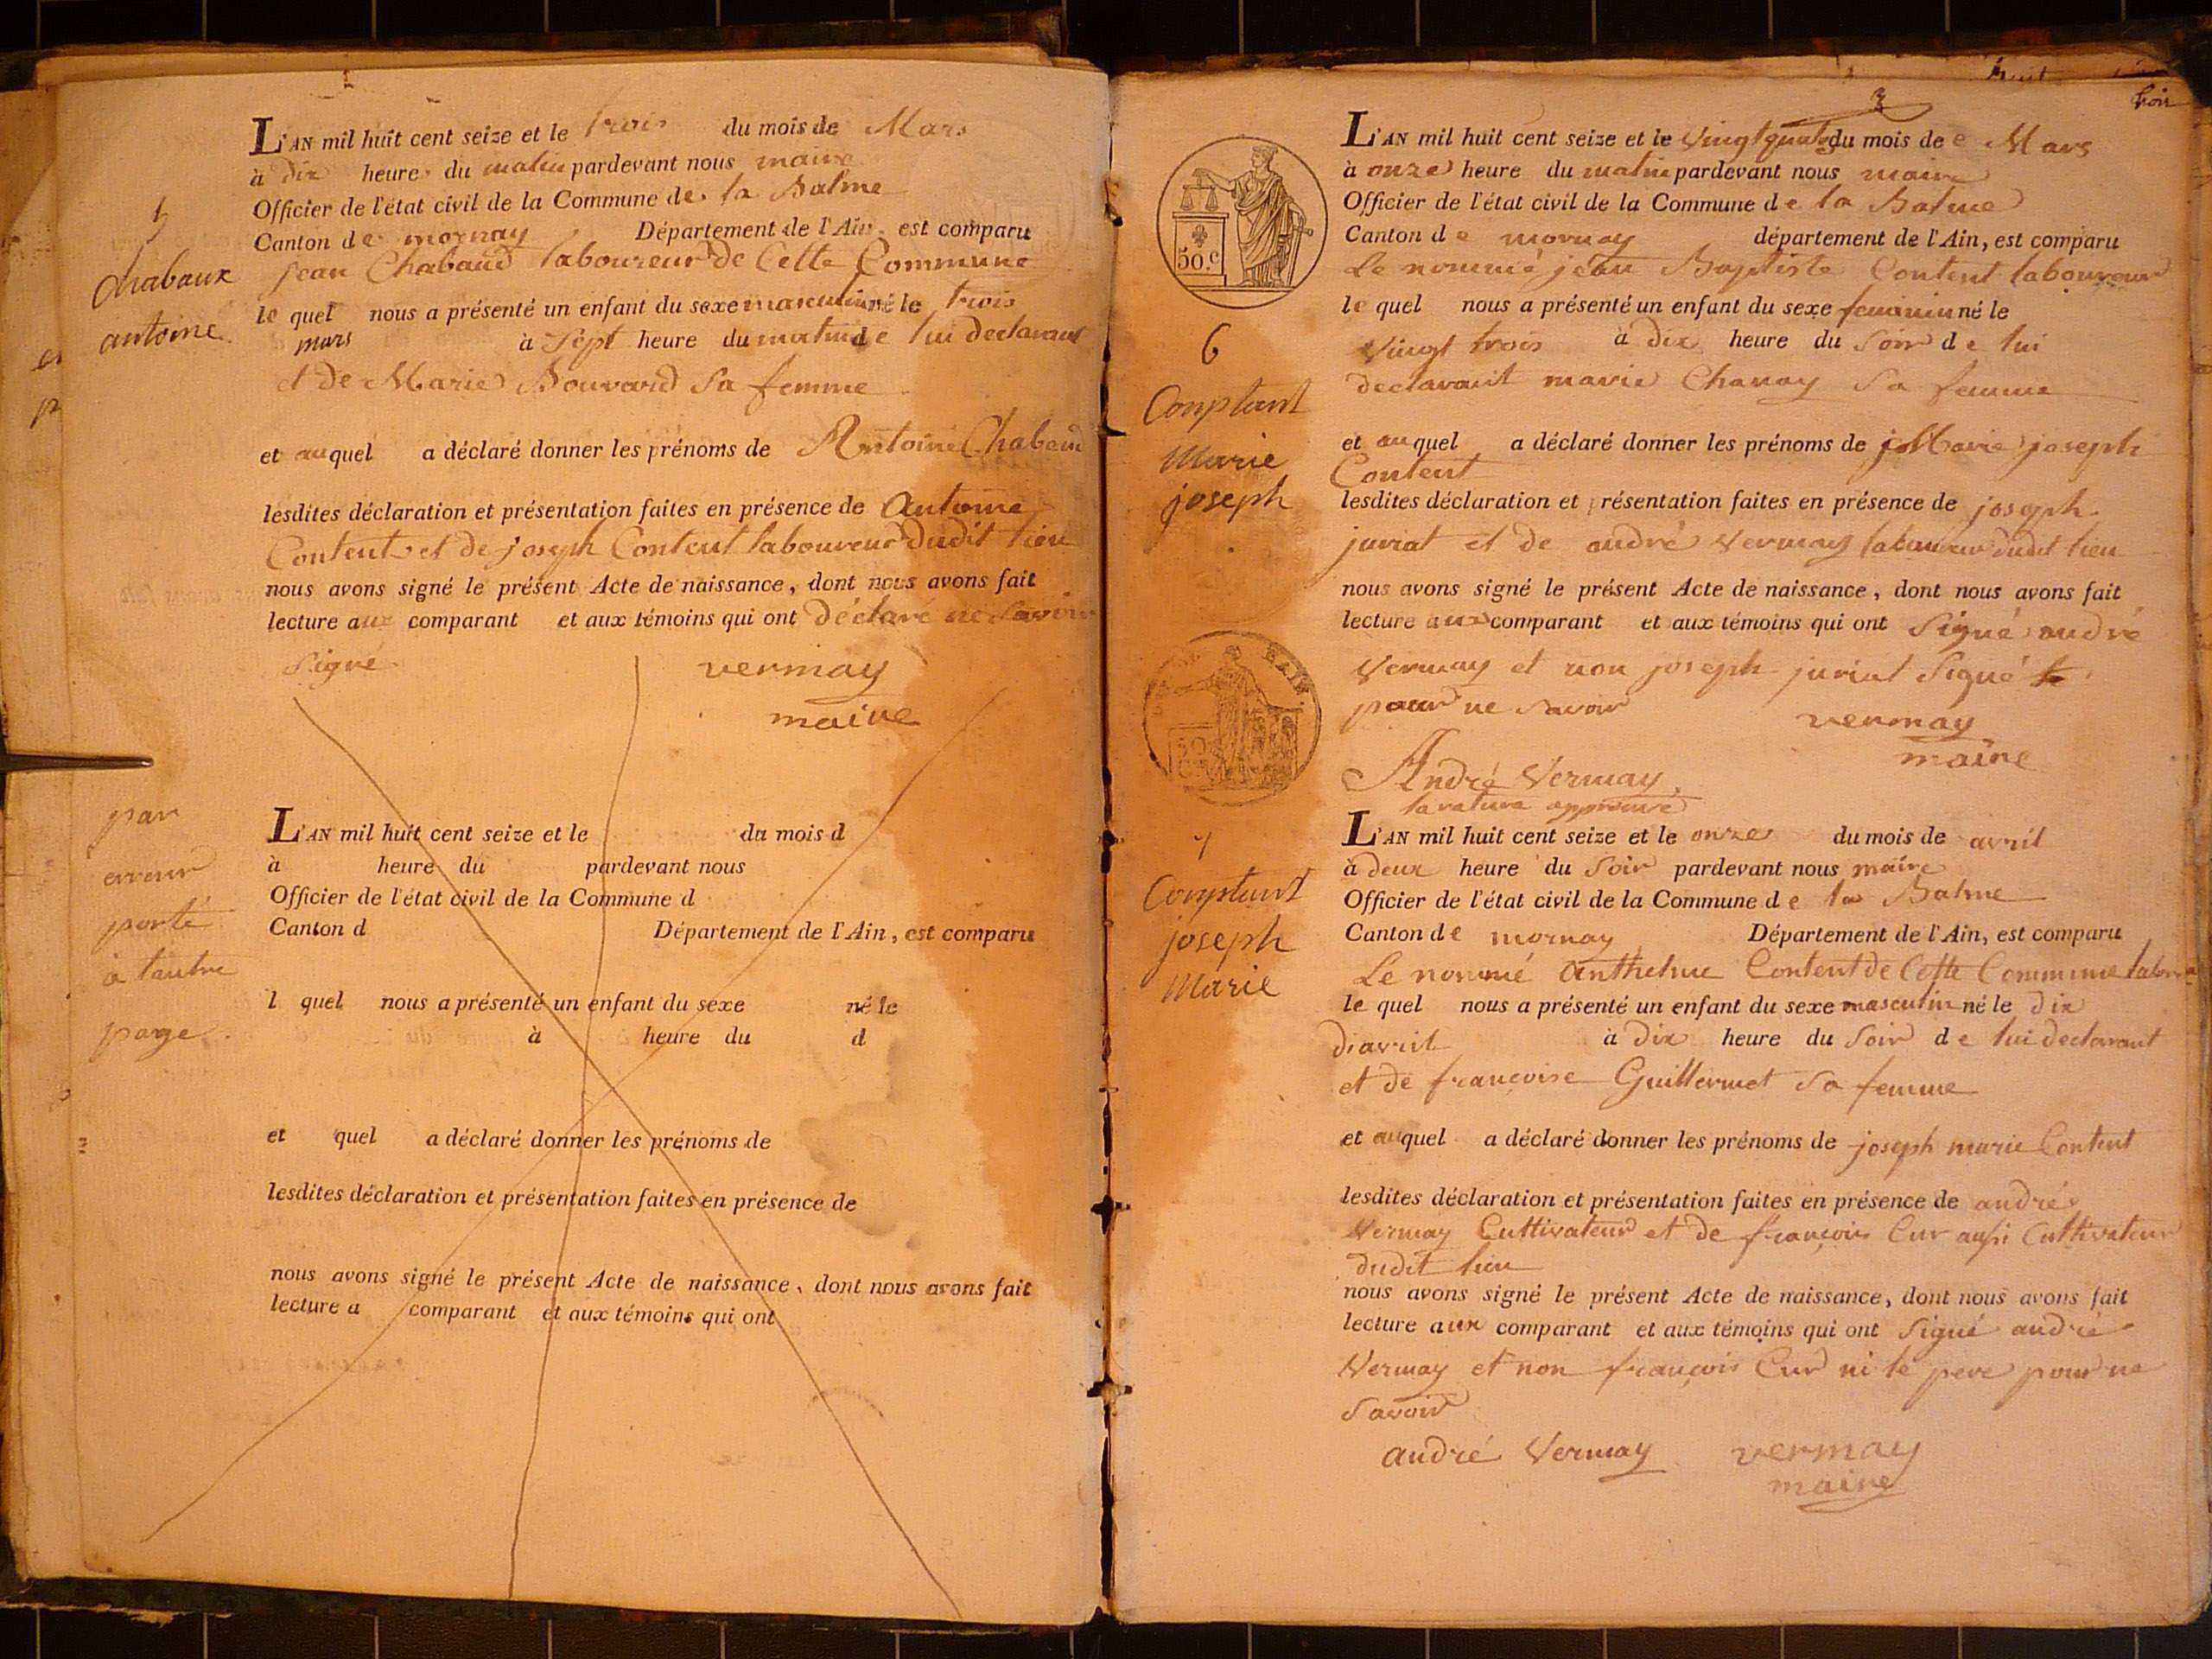 5
Chabaux
antoine
L'AN mil huit cent seize et le trois du mois de Mars
à dix heure du matin pardevant nous maire
Officier de l'état civil de la Commune de la Balme
Canton de mornay Département de l'Ain, est comparu
jean Chabaud laboureur de Cette Commune
le quel nous a présenté un enfant du sexe masculin né le trois
mars à Sept heure du matin de lui declarant
et de Marie Bouvard Sa femme
et auquel a déclaré donner les prénoms de Antoine Chabaud
lesdites déclaration et présentation faites en présence de Antoine
Content et de joseph Content laboureur dudit lieu
nous avons signé le présent Acte de naissance, dont nous avons fait
lecture aux comparant et aux témoins qui ont déclaré ne Savoir
Signé
vermay
maire
par
erreur
porté
à lautre
page
L'AN mil huit cent seize et le du mois d
à heure du pardevant nous
Officier de l'état civil de la Commune d
Canton d Département de l'Ain, est comparu
l quel nous a présenté un enfant du sexe né le
à heure du d
et quel a déclaré donner les prénoms de
lesdites déclaration et présentation faites en présence de
nous avons signé le présent Acte de naissance, dont nous avons fait
lecture a comparant et aux témoins qui ont
3
trois
50.c
6
Comptant
Marie
joseph
L'AN mil huit cent seize et le vingt quatre du mois de Mars
à onze heure du matin pardevant nous maire
Officier de l'état civil de la Commune de la Balme
Canton de mornay département de l'Ain, est comparu
Le nommé jean Baptiste Content laboureur
le quel nous a présenté un enfant du sexe feminin né le
vingt trois à dix heure du Soir de lui
declarant marie Chanay Sa femme
et auquel a déclaré donner les prénoms de Marie joseph
Content
lesdites déclaration et présentation faites en présence de joseph
juriat et de andré Vermay laboureur dudit lieu
nous avons signé le présent Acte de naissance, dont nous avons fait
lecture aux comparant et aux témoins qui ont Signé andré
Vermay et non joseph juriat Signé
pour ne Savoir
vermay
maire
André Vermay
la rature approuvé
7
Comptant
joseph
Marie
L'AN mil huit cent seize et le onze du mois de avril
à deux heure du Soir pardevant nous maire
Officier de l'état civil de la Commune de la Balme
Canton de mornay Département de l'Ain, est comparu
Le nommé anthelme Content de Cette Commune
le quel nous a présenté un enfant du sexe masculin né le dix
davril à dix heure du Soir de lui declarant
et de francoise Guillermet Sa femme
et auquel a déclaré donner les prénoms de joseph marie Content
lesdites déclaration et présentation faites en présence de andré
Vermay Cultivateur et de françois Cur aussi Cultivateur
dudit lieu
nous avons signé le présent Acte de naissance, dont nous avons fait
lecture aux comparant et aux témoins qui ont Signé andré
Vermay et non françois Cur ni le pere pour ne
Savoir
andré Vermay
vermay
maire